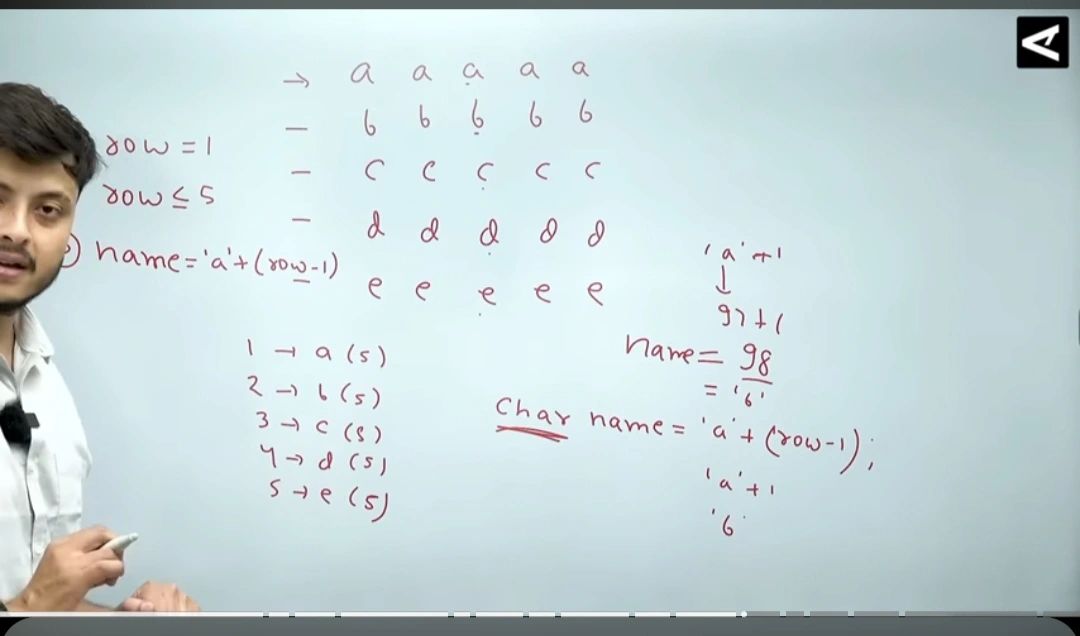 → a a a a a
– b b b b b
row = 1
– c c c c c
row ≤ 5
– d d d d d
name = 'a' + (row-1)
e e e e e
'a' + 1
↓
97 + 1
name = 98
= 'b'
1 → a (5)
2 → b (5)
3 → c (5)
4 → d (5)
5 → e (5)
Char name = 'a' + (row-1);
'a' + 1
'b'